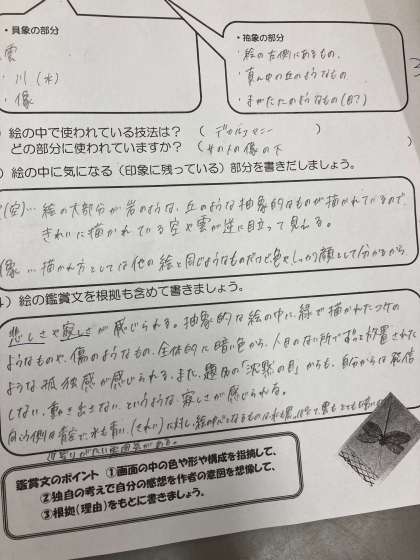 ・具象の部分
雲
・川(水)
・像
・抽象の部分
・絵の右側にあるもの。
・真ん中の丘のようなもの
絵の中で使われている技法は? (デカルコマニー)
どの部分に使われていますか? (
)絵の中に気になる(印象に残っている)部分を書きだしましょう。
(空)… 絵の大部分が岩のような、丘のような抽象的なものが描かれているので、
きれいに描かれている空や雲が逆に目立って見える。
像 … 描かれ方としては他の絵と同じようなものだけど色や
)絵の鑑賞文を根拠も含めて書きましょう。
悲しさや寂しさが感じられる。抽象的な絵の中に、緑で描かれたコケの
ようなものや、傷のようなもの、全体的に暗い色から、人目のない所でずっと放置された
ような孤独感が感じられる。また、題名の「沈黙の目」からも、自分からは発信
しない、動き出さない、というような寂しさが感じられる。
向こう側は青空で、水も青い、(きれい)に対し、絵の中心となるものは
鑑賞文のポイント ①画面の中の色や形や構成を指摘して、
②独自の考えで自分の感想を作者の意図を想像して、
③根拠(理由)をもとに書きましょう。